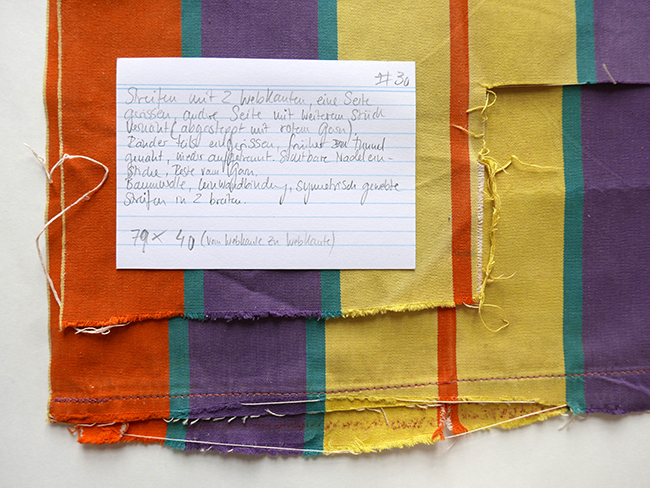 #30
Streifen mit 2 Webkanten, eine Seite
gerissen, andre Seite mit weiterem Stück
vernäht (abgesteppt mit rotem Garn)
Ränder teils aufgerissen, früher zu Tunnel
genäht, wieder aufgetrennt. Sichtbare Nadelein-
stiche, Reste vom Garn.
Baumwolle, Leinwandbindung, symetrisch gewebte
Streifen in 2 Breiten.
79 x 40 (von Webkante zu Webkante)